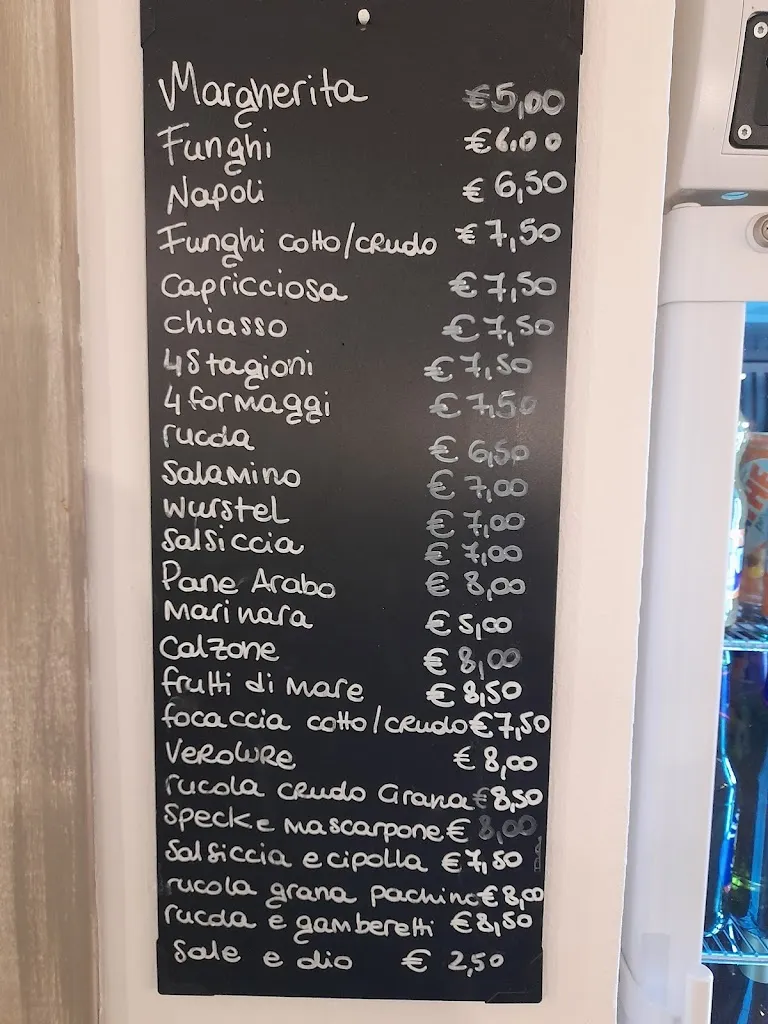 Margherita €5,00
Funghi €6,00
Napoli €6,50
Funghi cotto/crudo €7,50
Capricciosa €7,50
chiasso €7,50
4 Stagioni €7,50
4 formaggi €7,50
rucola €6,50
Salamino €7,00
wurstel €7,00
Salsiccia €7,00
Pane Arabo €8,00
Marinara €5,00
Calzone €8,00
frutti di mare €8,50
focaccia cotto/crudo €7,50
Verdure €8,00
rucola crudo Grana €8,50
Speck e mascarpone €8,00
Salsiccia e cipolla €7,50
rucola grana pachino €8,00
rucola e gamberetti €8,50
Sale e olio €2,50